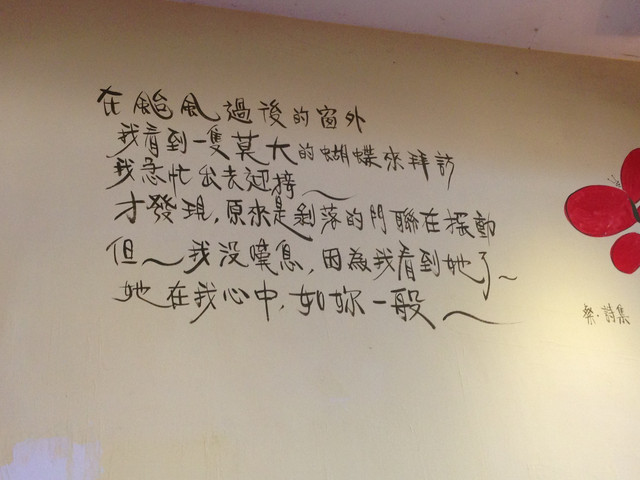 在颱風過後的窗外
我看到一隻莫大的蝴蝶來拜訪
我急忙出去迎接~
才發現,原來是剝落的門聯在擺動
但~我沒嘆息,因為我看到她了~
她在我心中,如妳一般~
粲·詩集